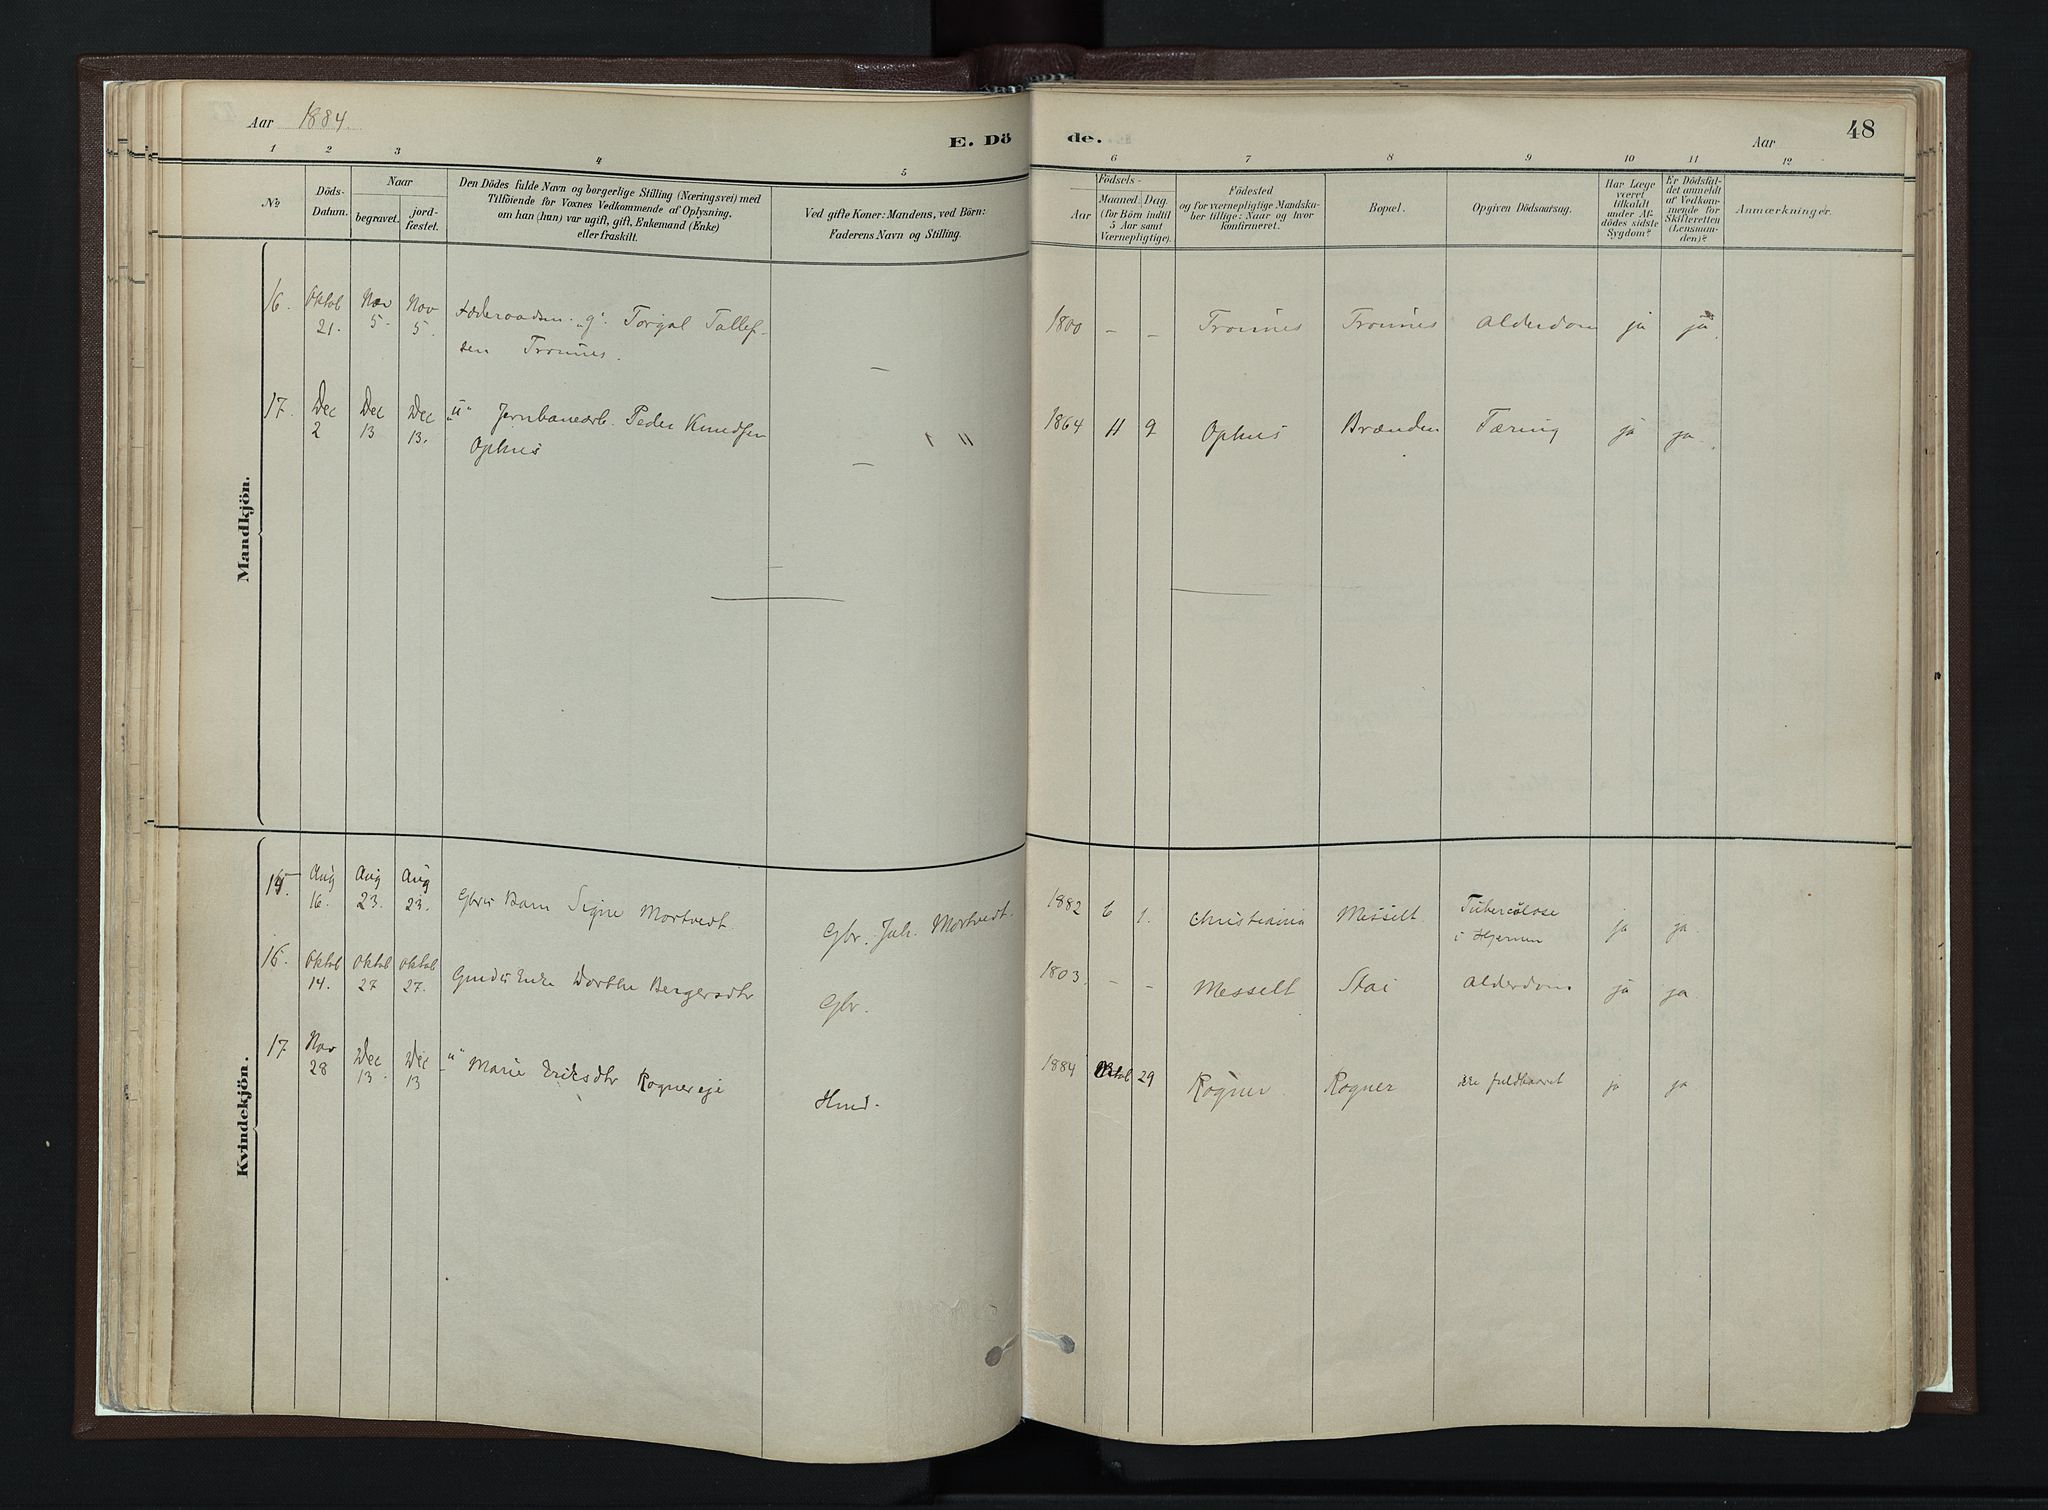 Aar 1884.
E. Dö
de.
Aar
48
1 2 3 4 5 6 7 8 9 10 11 12
№
Döds-
Datum.
Naar
begravet.
jord-
fæstet.
Den Dödes fulde Navn og borgerlige Stilling (Næringsvei) med
Tilföiende for Voxnes Vedkommende af Oplysning,
om han (hun) var ugift, gift, Enkemand (Enke)
eller fraskilt.
Ved gifte Koner: Mandens, ved Börn:
Faderens Navn og Stilling.
Födsels-
Aar
Maaned. Dag
(for Börn indtil
5 Aar samt
Værnepligtige).
Födested
og for værnepligtige Mandska-
ber tillige: Naar og hvor
konfirmeret.
Bopæl.
Opgiven Dödsaarsag.
Har Læge
været
tilkaldt
under Af-
dödes sidste
Sygdom?
Er Dödsfal-
det anmeldt
af Vedkom-
mende for
Skifteretten
(Lensman-
den)?
Anmærkninger.
Mandkjön.
16. Oktob Nov Nov
21. 5. 5.
"g". Torgal Tollef-
sen Tronnes.
—
1800 — — Tronnes Tronnes Alderdom ja ja.
17. Dec Dec Dec "u" Jernbanearb. Peder Knudsen
2 13 13. Ophus
—
1864 11 9 Ophus Brænden Tæring ja ja.
Kvindekjön.
15. Aug Aug Aug
16. 23. 23. Gbrs Barn Signe Mortvedt.
Gbr. Joh. Mortvedt.
1882 6 1. Christiania Messelt. Tuberculose
i Hjernen ja ja.
16. Oktob Oktob Oktob
14. 27 27. Enke Dorthe Bergersdtr
Gbr.
1803. — — Messelt Stai Alderdom ja ja.
17 Nov Dec Dec
28 13. 13 "u" Marie Eriksdtr Rognereje
Hmd.
1884 Oktob 29 Rogner Rogner ikke fuldbaaret ja ja